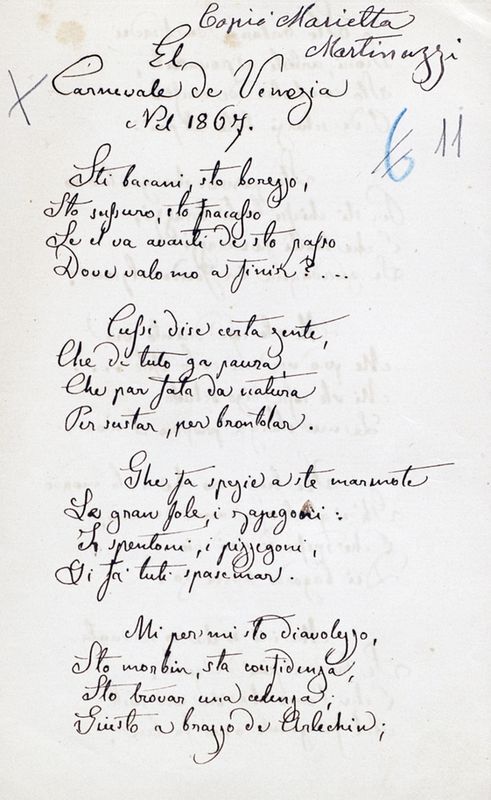 Copiò Marietta
Martinuzzi
El
Carnevale de Venezia
Nel 1867.
6 11
Sti bacani, sto borezzo,
Sto sussuro, sto fracasso
Se el va avanti de sto passo
Dove valo mo a finir?...
Cussì dise certa zente,
Che de tuto ga paura,
Che par fata da natura
Per sustar, per brontolar.
Ghe fa spezie a ste marmote
La gran fole, i zapegoni:
I spentoni, i pizzegoni,
Li fà tuti spasemar.
Mi per mi sto diavolezzo,
Sto morbin, sta confidenza,
Sto trovar una
Giusto a brazzo de Arlechin;